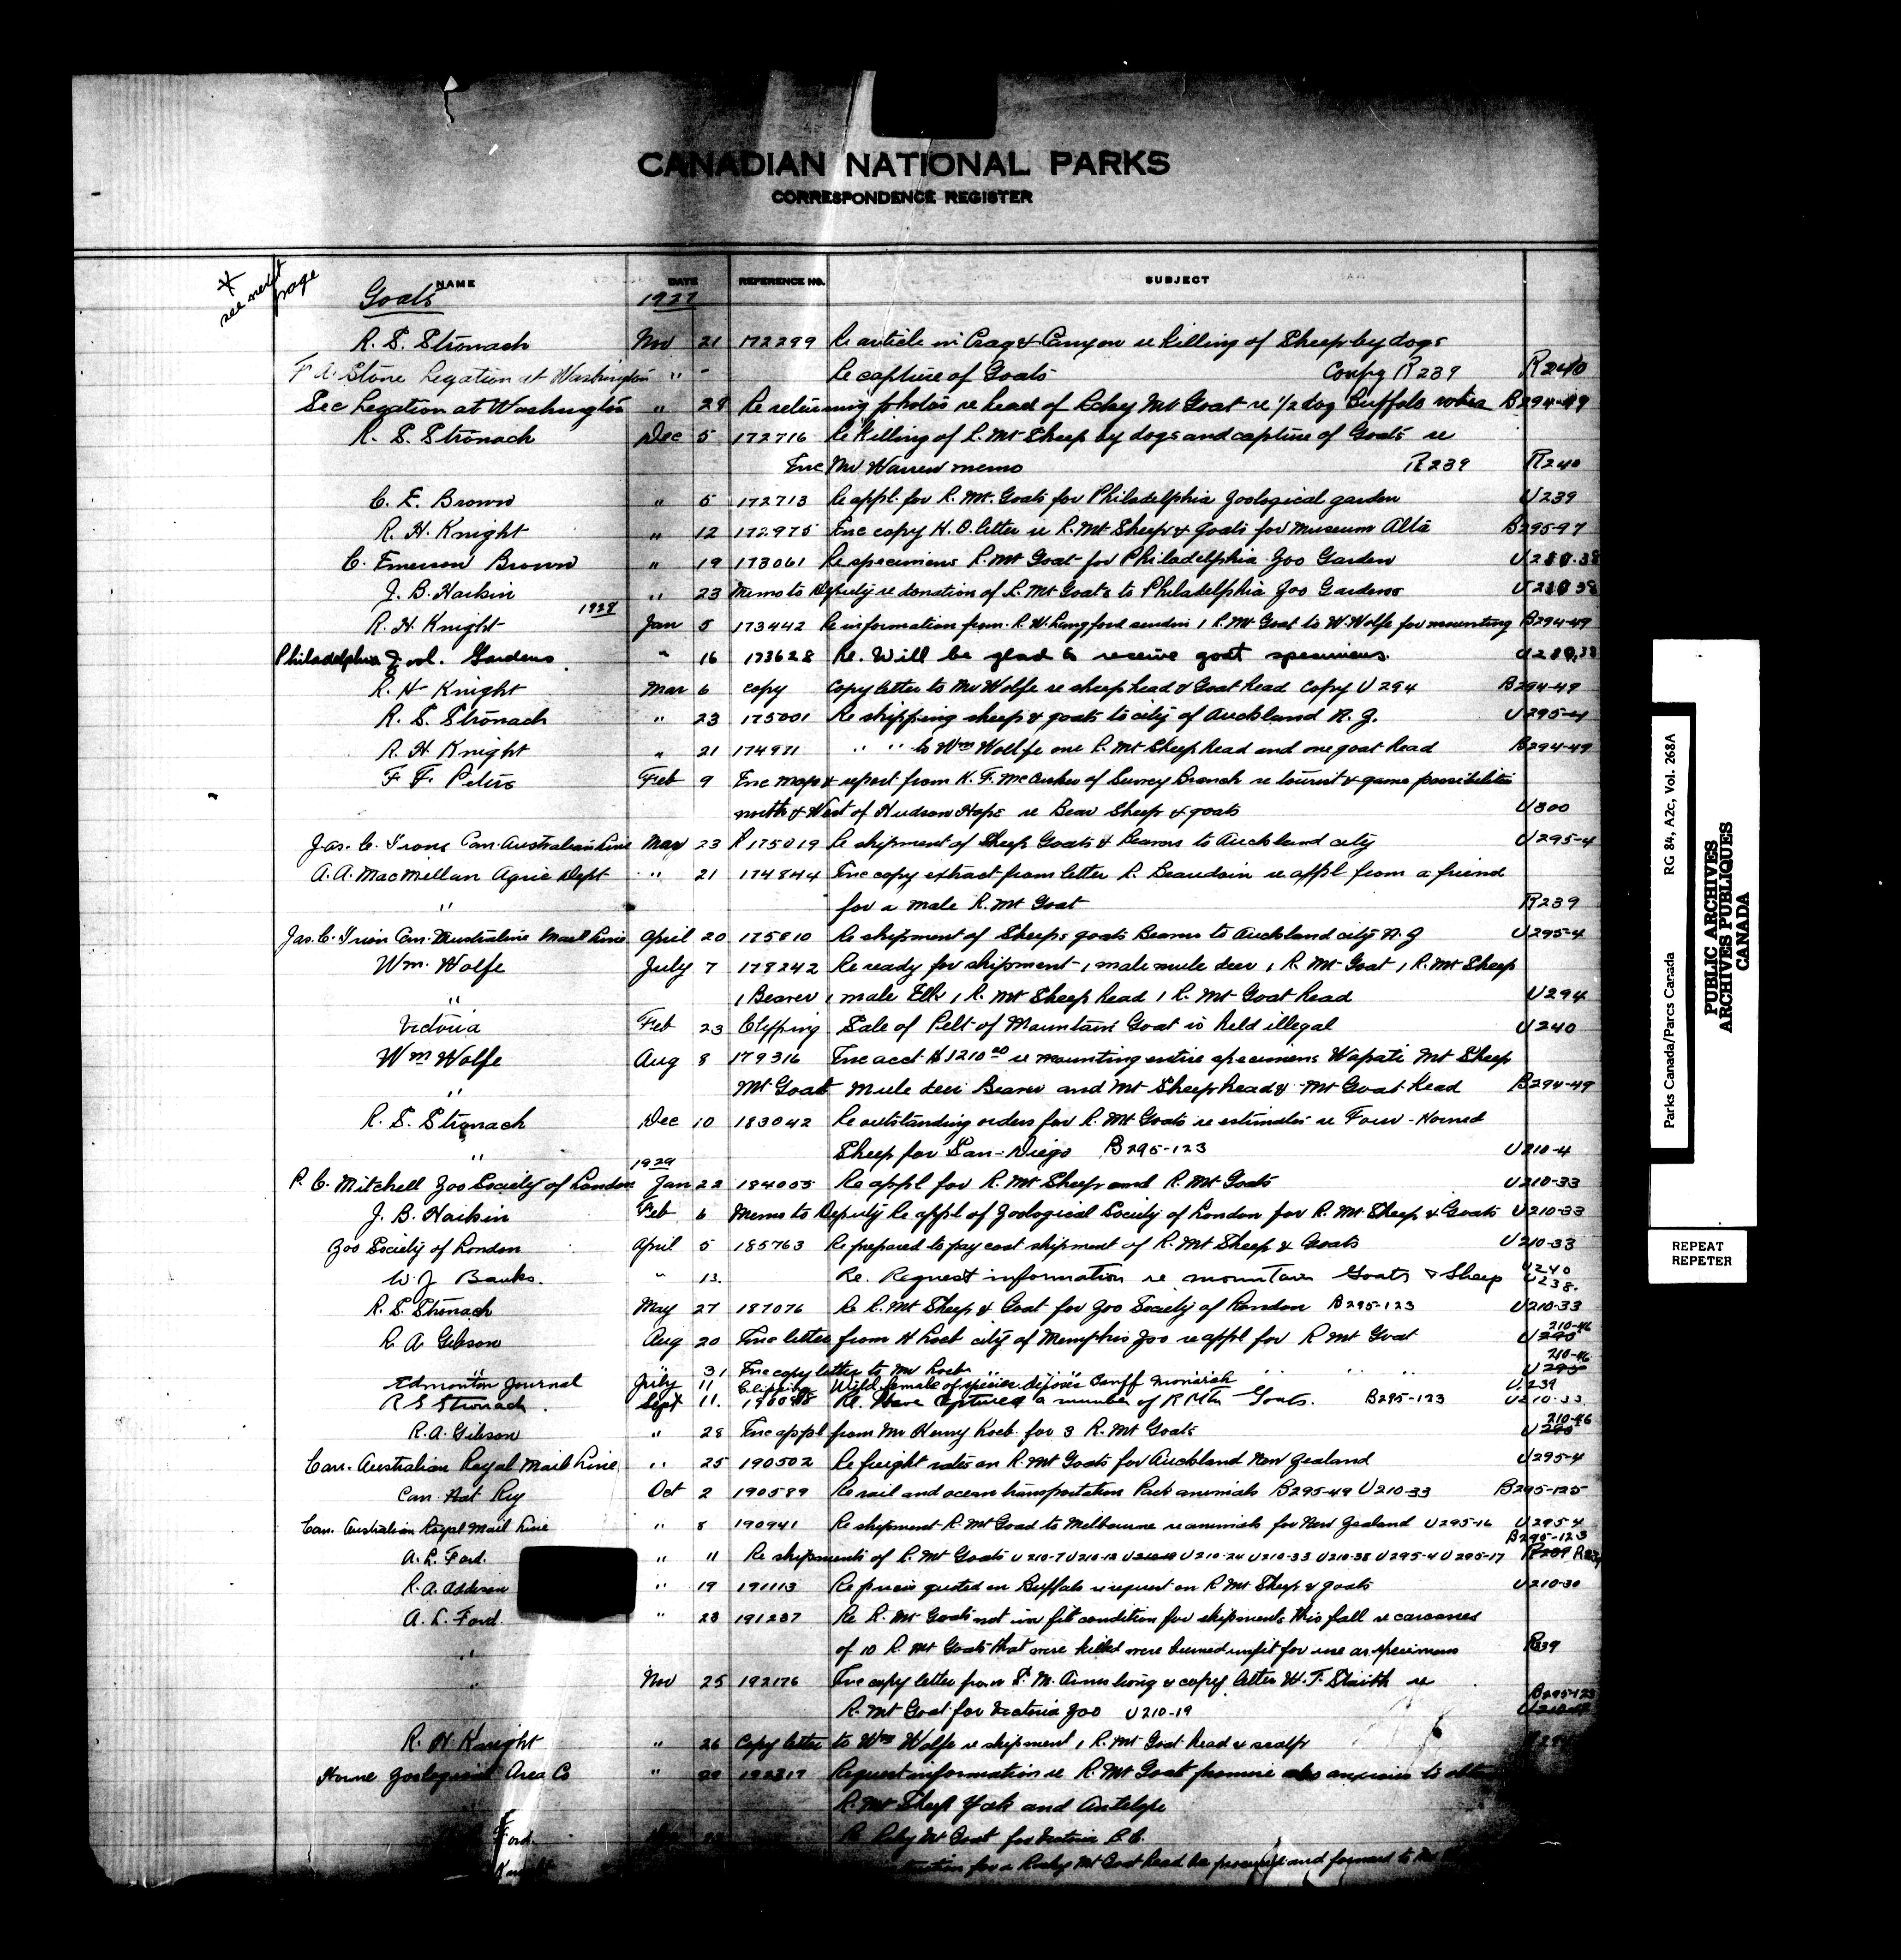 CANADIAN NATIONAL PARKS
CORRESPONDENCE REGISTER
* see next page
NAME DATE REFERENCE NO. SUBJECT
Goats 1927
R. S. Stronach Nov 21 172299 Re article in Crag & Canyon re killing of Sheep by dogs
F. A. Stone Legation at Washington " - Re capture of Goats Copy R239 R240
Sec Legation at Washington " 29 Re returning photos re head of Rocky Mt Goat re 1/2 dog Buffalo B294-49
R. S. Stronach Dec 5 172716 Re Killing of R. Mt Sheep by dogs and capture of Goats re
Enc Mr Warren memo R239 R240
C. E. Brown " 5 172713 Re appl. for R. Mt. Goats for Philadelphia Zoological garden U239
R. H. Knight " 12 172975 Enc copy H.O. letter re R. Mt Sheep & goats for museum Alta B295-97
C. Emerson Brown " 19 173061 Re specimens R. Mt Goat for Philadelphia Zoo Garden U210.38
J. B. Harkin " 23 Memo to Deputy re donation of R. Mt Goats to Philadelphia Zoo Gardens U210 38
1928
R. H. Knight Jan 5 173442 Re information from R. W. Langford sending 1 R. Mt Goat to W. Wolfe for mounting B294-49
Philadelphia Zool. Gardens " 16 173628 Re. Will be glad to receive goat specimens. U210.38
R. H Knight Mar 6 copy Copy letter to Mr Wolfe re sheep head & Goat head Copy U294 B294-49
R. S. Stronach " 23 175001 Re shipping sheep & goats to city of Auckland N. Z. U295-4
R. H. Knight " 21 174971 " " to Wm Wolfe one R. Mt Sheep head and one goat head B294-49
F. F. Peters Feb 9 Enc map & report from K. F. McCusker of Survey Branch re tourist & game possibilities
north & West of Hudson Hope re Bear Sheep & goats U300
Jas. C. Irons Can. Australian Line Mar 23 R175019 Re shipment of Sheep Goats & Beavers to Auckland city U295-4
A. A. MacMillan Agric Dept " 21 174844 Enc copy extract from letter R. Beaudoin re appl from a friend
" for a male R. Mt Goat R239
Jas. C. Irons Can. Australian Mail Line April 20 175810 Re shipment of Sheep goats Beaver to Auckland city N. Z U295-4
Wm. Wolfe July 7 178242 Re ready for shipment 1 male mule deer 1 R. Mt Goat 1 R. Mt Sheep
" 1 Beaver 1 male Elk 1 R. Mt Sheep head 1 R. Mt Goat head U294
Victoria Feb 23 Clipping Sale of Pelt of Mountain Goat is held illegal U240
Wm Wolfe Aug 8 179316 Enc acct $1210 00 re mounting entire specimens Wapiti Mt Sheep
" Mt Goat Mule deer Beaver and Mt Sheep head & Mt Goat head B294-49
R. S. Stronach Dec 10 183042 Re outstanding orders for R. Mt Goats re estimates re Four-Horned
" Sheep for San-Diego B295-123 U210-4
1929
P. C. Mitchell Zoo Society of London Jan 22 184005 Re appl for R. Mt Sheep and R. Mt Goats U210-33
J. B. Harkin Feb 6 Memo to Deputy Re appl of Zoological Society of London for R. Mt Sheep & Goats U210-33
Zoo Society of London April 5 185763 Re prepared to pay cost shipment of R. Mt Sheep & Goats U210-33
W. J Banks. " 13. Re. Request information re mountain Goats & Sheep U240 U238.
R. S. Stronach May 27 187076 Re R. Mt Sheep & Goat for Zoo Society of London B295-123 U210-33
R. A. Gibson Aug 20 Enc letter from H Loeb city of Memphis Zoo re appl for R Mt Goat U290 210-46
" " 31 Enc copy letter to Mr Loeb " " " " " U295 210-46
Edmonton Journal July 11 Clipping Wild female of species deposes Banff monarch U.239
R S Stronach. Sept 11. Re. Have captured a number of R Mtn Goats. B295-123 U210-33.
R. A. Gibson " 28 Enc appl from Mr Henry Loeb for 3 R. Mt Goats U290 210-46
Can. Australian Royal Mail Line " 25 190502 Re freight rates on R. Mt Goats for Auckland New Zealand U295-4
Can. Nat Ry Oct 2 190589 Re rail and ocean transportation Park animals B295-49 U210-33 B295-125
Can. Australian Royal Mail Line " 8 190941 Re shipment R. Mt Goad to Melbourne re animals for New Zealand U295-16 U295-4
B295-123
A. L. Ford. " " Re shipments of R. Mt Goats U210-7 U210-12 U210-24 U210-33 U210-38 U295-4 U295-17 R239
R. A. Addison " 19 191113 Re prices quoted on Buffalo re request on R Mt Sheep & goats U210-30
A. L. Ford. " 23 191237 Re R. Mt Goats not in fit condition for shipments this fall re carcasses
" of 10 R. Mt Goats that were killed were burned unfit for use as specimens R239
" Nov 25 192176 Enc copy letter from P. M. Armstrong & copy letter W. F. Smith re
R. Mt Goat for Victoria Zoo U210-19 B295-123
R. H. Knight " 26 Copy letter to Wm Wolfe re shipment 1 R. Mt Goat head & scalp
Horne Zoological Area Co " 29 192317 Request information re R. Mt Goat also anxious to
R. Mt Sheep York and Antelope
Ford. Re Rocky Mt Goat for Victoria B. C.
Knight for a Rocky Mt Goat head be procured and forward to
Parks Canada/Parcs Canada RG 84, A2c, Vol. 268A
PUBLIC ARCHIVES
ARCHIVES PUBLIQUES
CANADA
REPEAT
REPETER